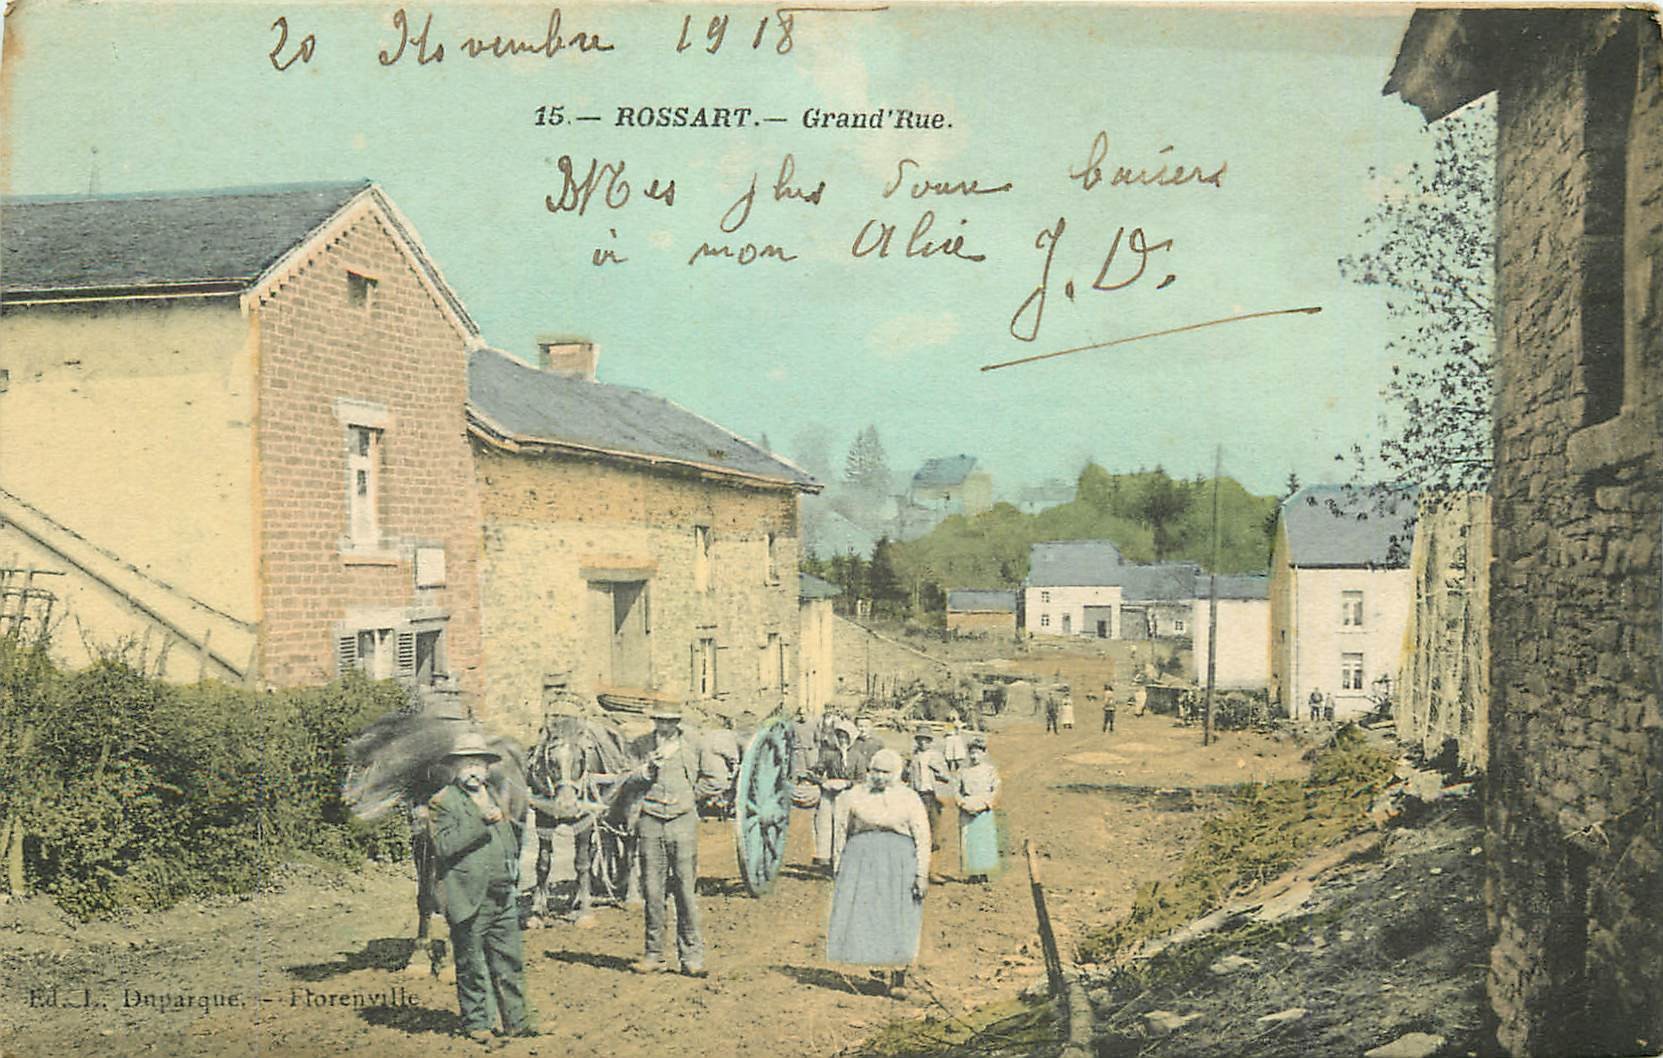 20 Novembre 1918
15.— ROSSART.— Grand'Rue.
Mes plus doux baisers
à mon Alice J. D.
Ed. L. Duparque. - Florenville